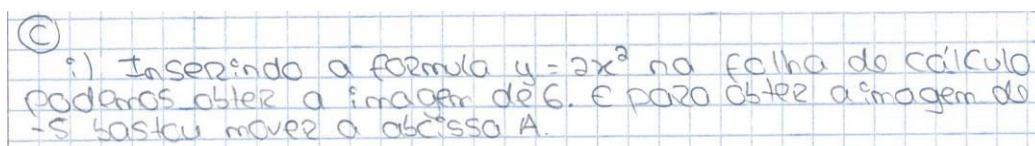 C
i) Inserindo a formula y = 2x² na folha do cálculo
podemos obter a imagem de 6. E para obter a imagem do
-5 bastou mover a abcissa A.